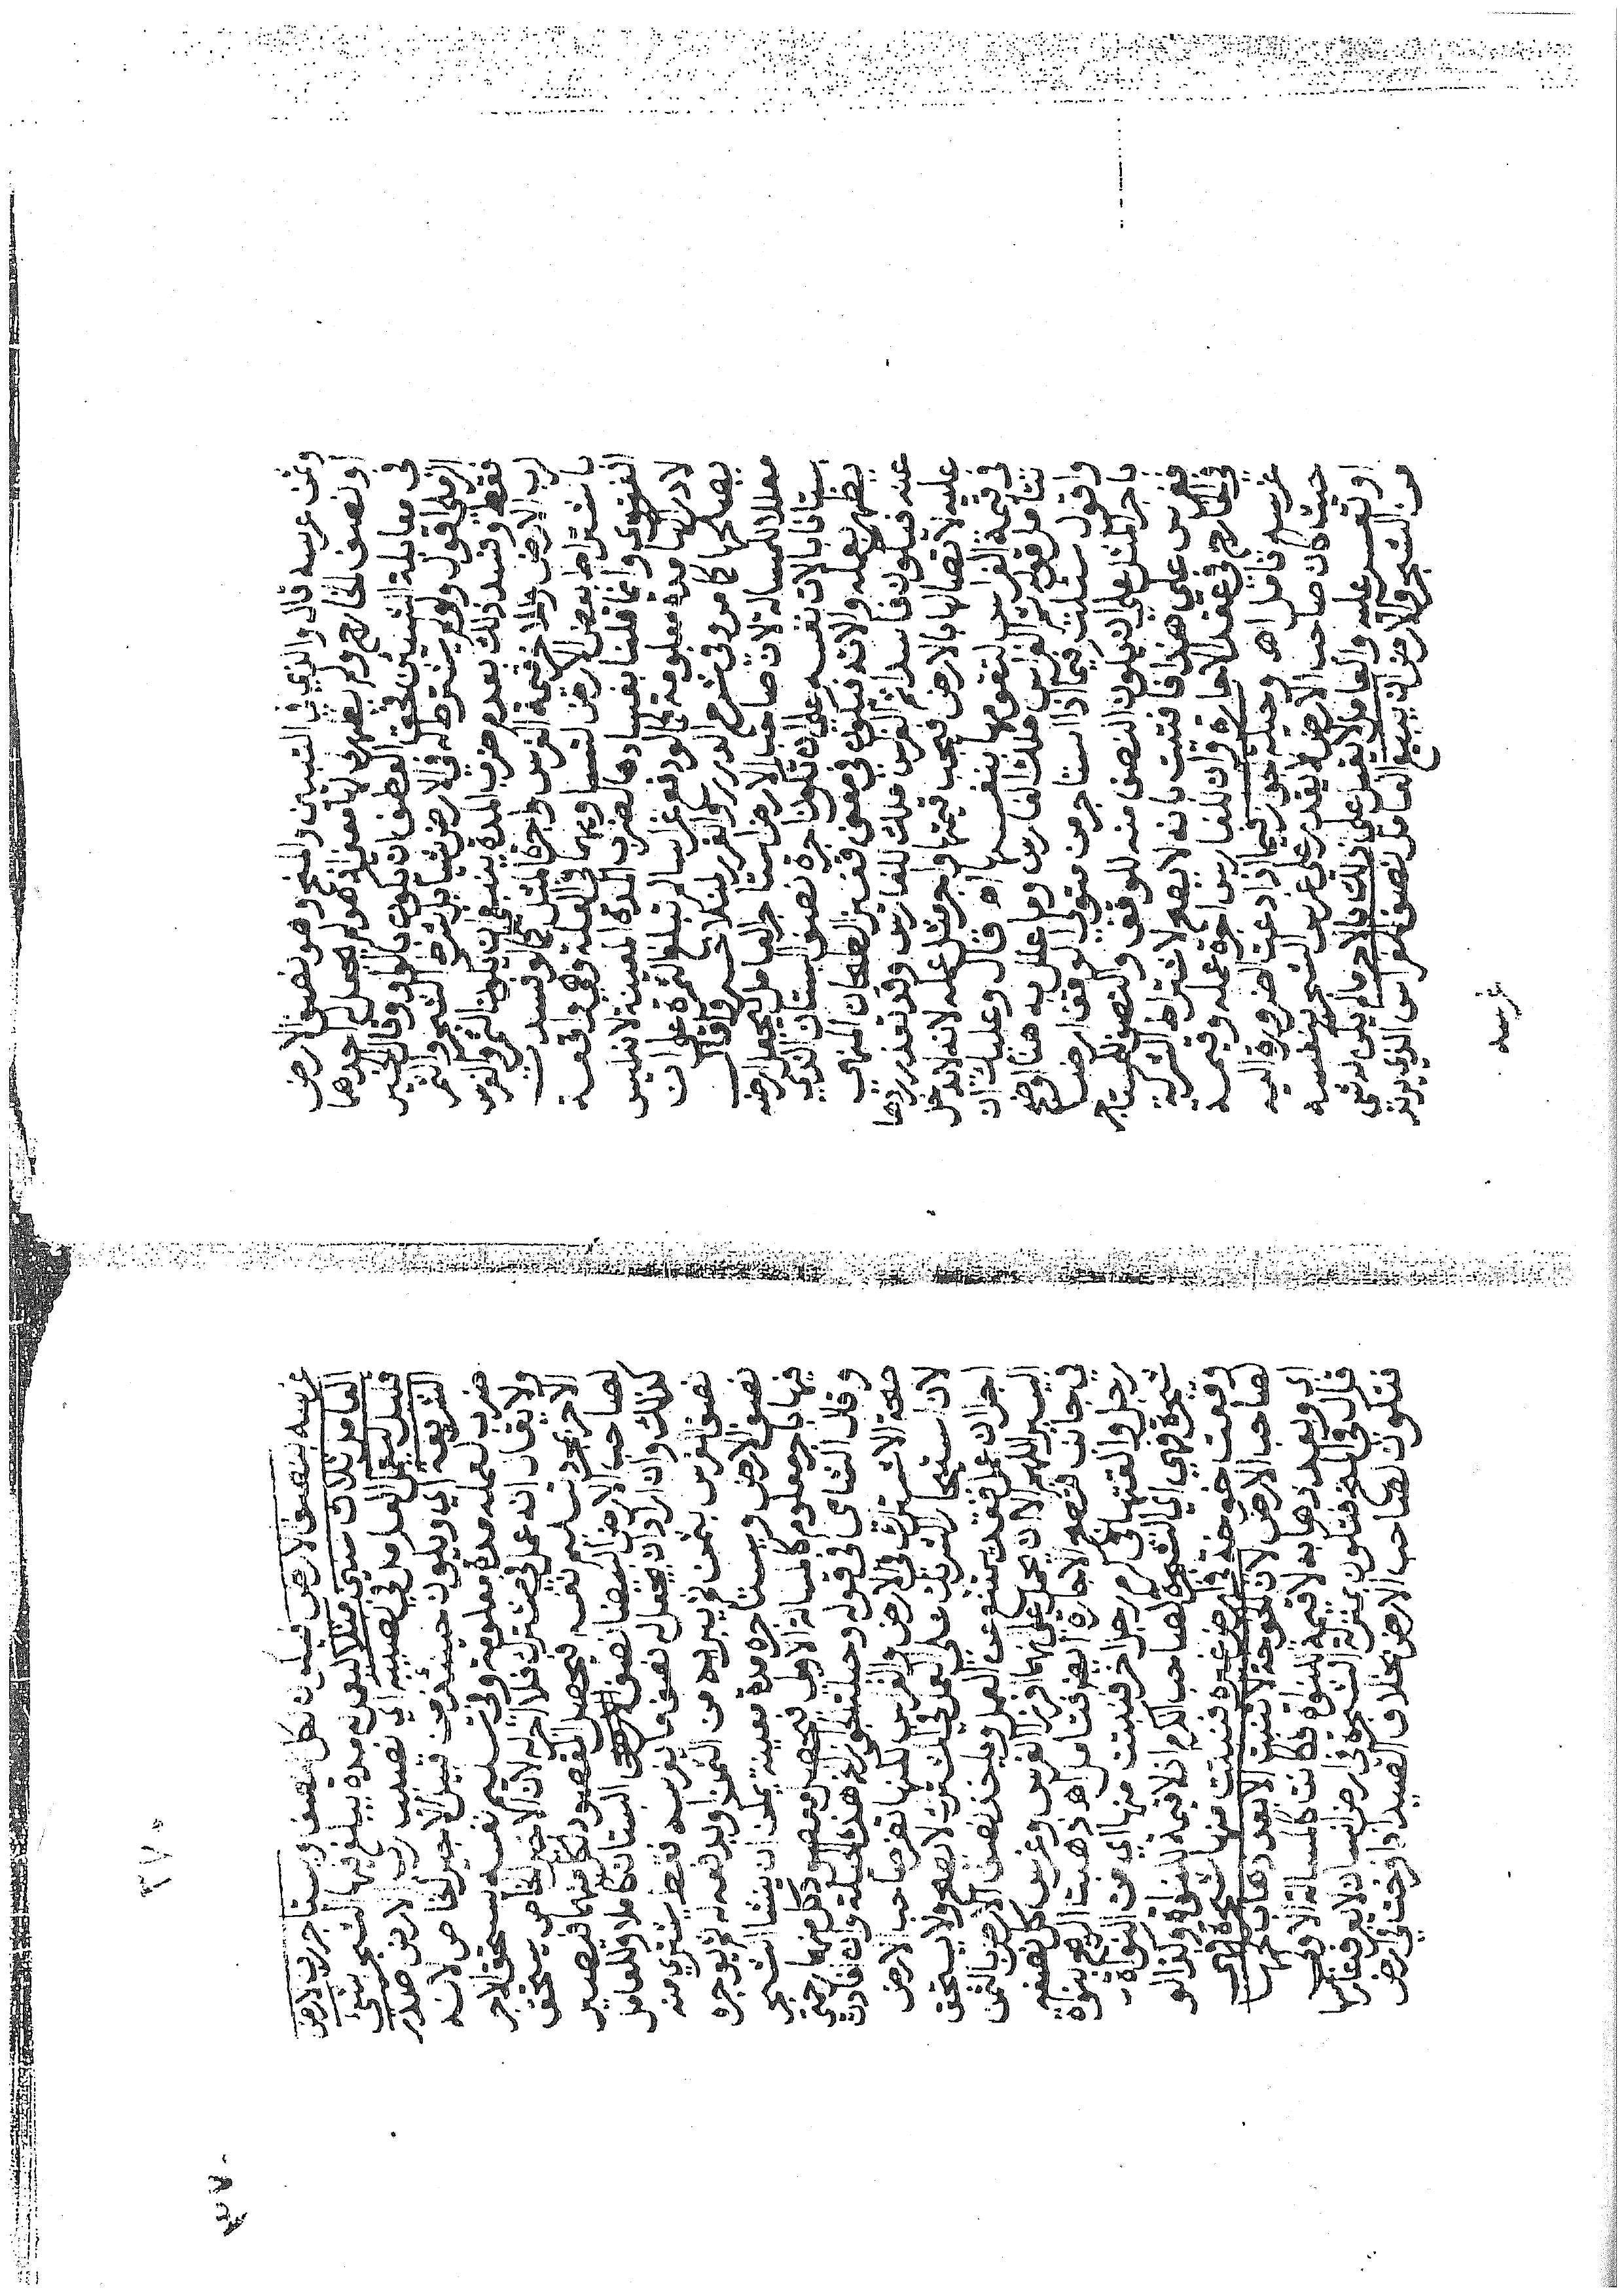 وثمن غرسه قال والذي في التبيين والمنح وهو نصف الارض
او نصف الخارج ولم يظهر لي اذ هو لم يجعل له احدهما
في مقابلة الشيئين فحق العطف ان يكون بالواو وقال الخير
الرملي اقول ولو لم يشترط له في الارض شيا بل شرط الشجر والثمر
فقط وفسد ذلك بعدم ضرب المدة ينبغي ان يكون الثمر والغرس
لرب الارض وللاخر قيمة الغرس واجر المثل كما لو فسدت
باشتراط بعض الارض لتساويهما في العلة وهي واقعة
الفتوى وانما قلنا بفسادها لضرب المدة المعينة لانه ليس
لادراكها مدة معلومة كما لو دفع غراسا لم تبلغ الثمرة على ان
يصلحها كما مر وفي شرح الدرر والغرر لمنلا خسرو قال
معللا للمسالة لان صاحب الارض استاجر العامل ليجعل ارضه
بستانا بالات نفسه على ان تكون اجرة نصف البستان الذي
يظهر بعمله والاته فيكون في معنى قفيز الطحان المنهي
عنه فيكون فاسدا ثم الغرس ملك للغارس وقد تعذر ردها
عليه لاتصالها بالارض فيجب قيمتها واجر مثل عمله لانه لا يدخل
في قيمة الغراس لتقومها بنفسها اه قال وعليك ان
تتامل قوله ثم الغراس ملك الغارس وما علل به هنا
واقول سئلت فيما اذا استاجر من متولي الوقف ارضا
باجر المثل على ان يكون النصف منه للوقف والنصف للمستاجر
فغرس على هذا فافتيت بانه لا يصح لاشتراط الشركة
في الخارج في عقد الاجارة وان للغارس اجرة عمله وقيمة
غرسه فتامل اه وحيلة الجواز فيما اذا دعت الضرورة اليه
حيث كان صاحب الارض لا يقدر على غرس الشجر بنفسه
او تعسر عليه والعامل لا يقبل على ذلك يبقى له شي
من الشجر والارض ان يبيع العامل نصف الغراس الذي يريد
غرسه
٢٧٠
غرسه بنصف الارض فيكون لكل نصف ويستاجر رب الارض
العامل ثلاث سنين مثلا ليعمل له مدة يبلغ فيها الشجر بشي
قليل ليعمل العامل في نصيبه اي نصيب رب الارض صدر
الشريعة اي ويكون حينئذ من قبيل الاجير الخاص لانه
ضرب لعمله مدة معلومة وفي تسليم نفسه يستحق الاجر
ولا يقال انه عمل في مشترك فلا اجر له لان الاجير الخاص يستحق
الاجر بمجرد تسليم نفسه فيحصل المقصود لكل منهما فيصير
لصاحب الارض البيضا نصف البستان كاملا وللعامل
كذلك وان اراد ان يجعل له نصف ما يغرسه فقط يشتري منه
نصف الغرس بثمن ثم يبريه من الثمن او يدفعه له ثم يوجره
نصف الارض ويستاجره مدة معينة يمكن ان ينشا الشجر
فيها باجر معلوم كالمسالة الاولى فيحصل مقصود كل منهما رحمتي
وقال الشامي في قوله وحيلة الجواز الخ هذه الحيلة وان افادت
صحة الاشتراك في الارض والغرس لكنها تضر صاحب الارض
لان استيجار الشريك على العمل في المشترك لا يصح ولا يستحق
اجرا ان عمل فقد يمتنع عن العمل وياخذ نصف الارض بالثمن
اليسير اللهم الا ان يحمل على انهما افرز الغرس وغرس كل نصفه
في جانب فتصح الاجارة فتامل اه ذهبت الريح بنواة
رجل والقتها في كرم رجل اخر فنبتت منها اي من النواة
شجرة فهي اي الشجرة لصاحب الكرم اذ لا قيمة للنواة وكذا لو
وقعت خوخة في ارض غيره فنبتت منها شجرة فهي
لصاحب الارض لان الخوخة لا تنبت الا بعد ذهاب لحمها
اي وبعد ذهابه لا قيمة للنواة فكانت كالمسالة الاولى
قال في المنح فتكون بمنزلة الشجرة في ارض انسان لا يعرف غارسها
فتكون لصاحب الارض بخلاف الصيد اذا فرخت في ارض